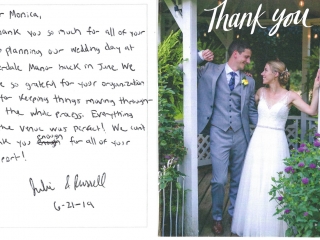 Monica,
you so much for all of your
planning our wedding day at
Manor back in June. We
so grateful for your organization
for keeping things moving through
the whole process. Everything
the venue was perfect! We can't
you enough for all of your
Julie & Russell
6-21-19
Thank you